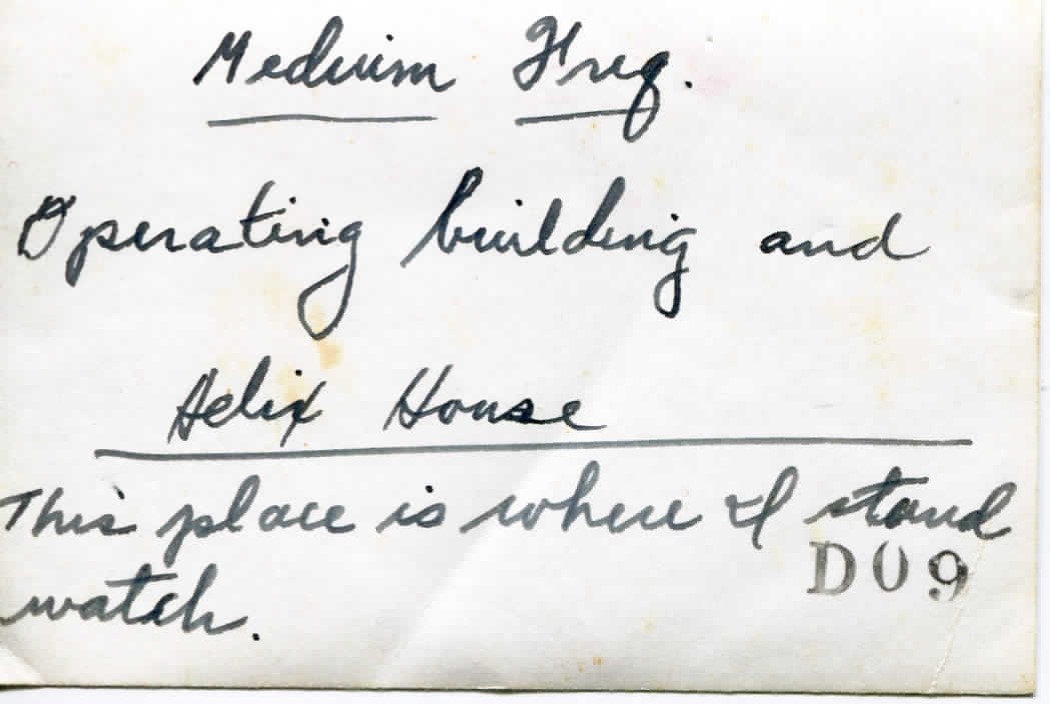 Medium Freq.
Operating building and
Helix House
This place is where I stand
D09
watch.